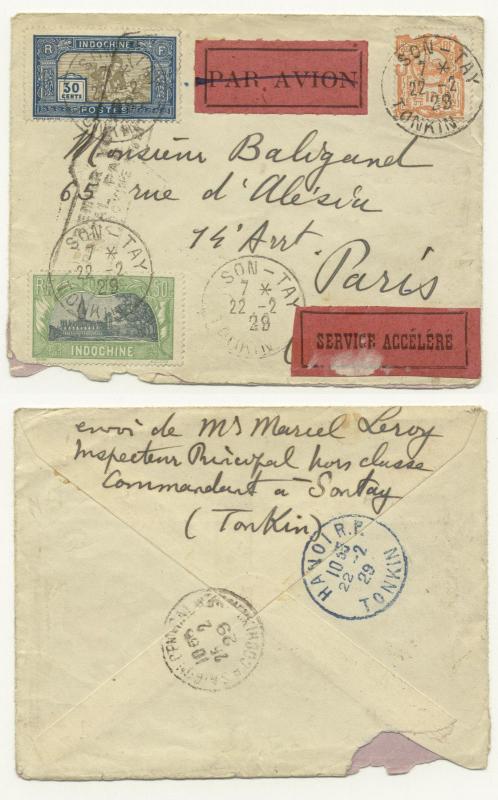 INDOCHINE
R F
30
CENTS
POSTES
PAR AVION
SON-TAY
7 *
22 -2
29
TONKIN
Monsieur Baligand
65 rue d'Alésia
14e Arrt
Paris
SON-TAY
7 *
22 -2
29
TONKIN
SON-TAY
7 *
22 -2
29
TONKIN
INDOCHINE
SERVICE ACCÉLÉRÉ
envoi de Mr Marcel Leroy
Inspecteur Principal hors classe
Commandant à Sontay
(Tonkin)
HANOI R.P.
22 -2
29
TONKIN
25
2
29